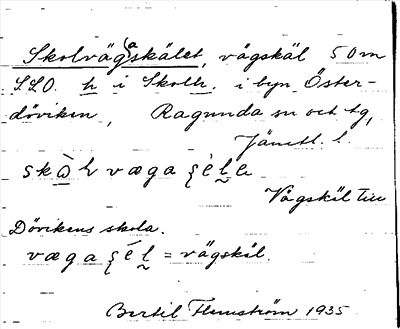 Skolvägaskälet, vägskäl 50m
S.S.O. h i Skolh. i byn Öster-
döviken, Ragunda sn och tg,
Jämtl. l.
skàɫvæga ʂèḷe
Vägskäl till
Dövikens skola.
væga ʂéḷ = vägskäl.
Bertil Flemström 1935